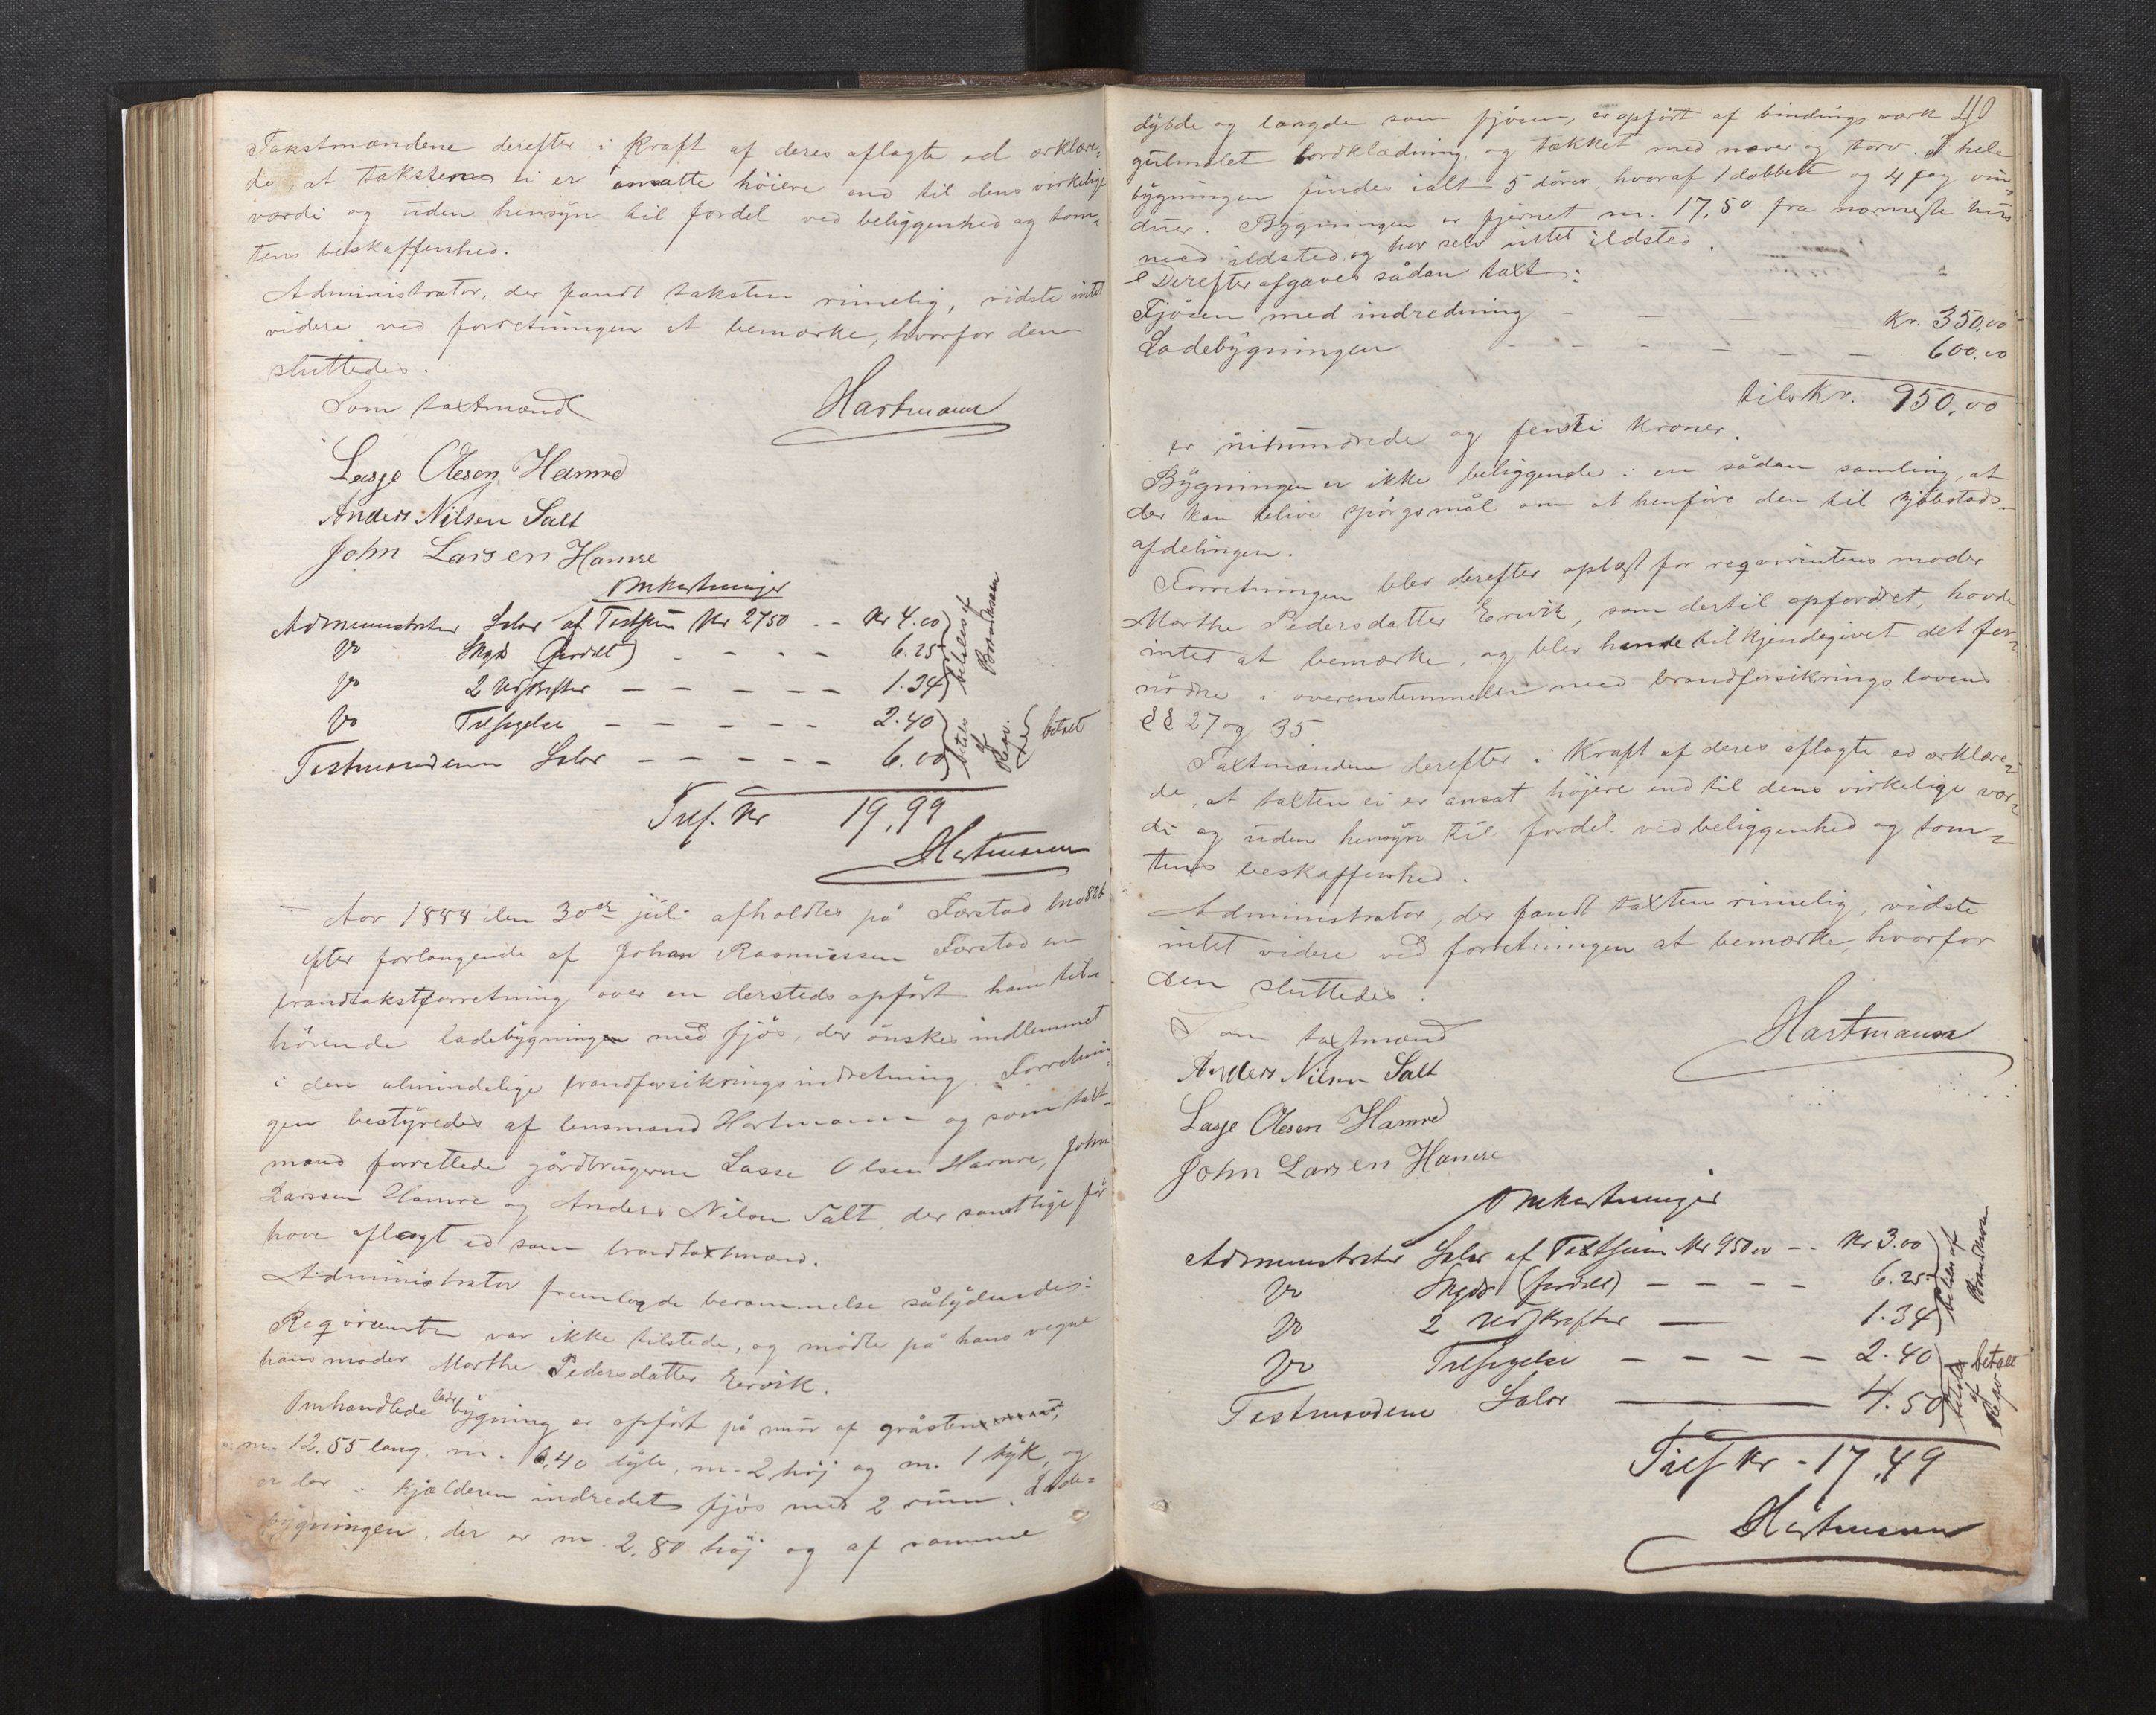 Takstmændene derefter i kraft af deres aflagte ed erklære-
de, at taksterne ei er ansatte höiere end til dens virkelige
værdi og uden hensyn til fordel ved beliggenhed og tom-
tens beskaffenhed.
Administrator, der fandt taksten rimelig, vidste intet
videre ved forretningen at bemærke, hvorfor den
sluttedes.
Som taxtmænd Hartmann
Lasse Olesen Hamre
Anders Nilsen Salt
John Larsen Hamre
Omkostninger
Administrator Salær af Taxtsum Kr 2750 - - Kr 4.00
Do Skyds (fordelt) - - - - 6.25
Do 2 Udskrifter - - - - - 1.34
betales af Brandkassen
Do Tilsigelse - - - - - 2.40
Taxtmændenes Salær - - - - - 6.00
betales af Reqv. betalt
Tils. Kr 19,99
Hartmann
Aar 1888 den 30te juli afholdtes på Færstad
efter forlangende af Johan Rasmussen Færstad en
brandtakstforretning over en dersteds opfört ham til-
hörende ladebygningen med fjös, der önskes indlemmet
i den almindelige brandforsikringsindretning. Forretnin-
gen bestyredes af lensmand Hartmann og som taxt-
mænd forrettede gårdbrugerne Lasse Olsen Hamre, John
Larssen Hamre og Anders Nilsen Salt, der samtlige för
have aflagt ed som brandtaxtmænd.
Administrator fremlagde berammelse sålydendes:
Reqvirenten var ikke tilstede, og mödte på hans vegne
hans moder Marthe Pedersdatter Ervik.
Omhandlede ladebygning er opfört på mur af gråsten
m. 12.55 lang, m. 6,40 dyb, m. 2 höj og m. 1 tyk, og
er der i kjælderen indredet fjös med 2 rum. Lade-
bygningen, der er m. 2,80 höj og af samme
110
dybde og længde som fjösen, er opfört af bindingsværk og
gulmalet bordklædning, og tækket med næver og törv. I hele
bygningen findes ialt 5 dörer, hvoraf 1 dobbelt og 4 fag vin-
duer. Bygningen er fjernet m. 17,50 fra nærmeste hus
med ildsted, og har selv intet ildsted.
Derefter afgaves sådan taxt:
Fjösen med indredning - - - - Kr. 350,00
Ladebygningen - - - - - - 600,00
tils Kr. 950,00
er nihundrede og femti kroner.
Bygningen er ikke beliggende i en sådan samling, at
der kan blive spörgsmål om at henföre den til kjöbstads-
afdelingen.
Forretningen blev derefter oplæst for reqvirentens moder
Marthe Pedersdatter Ervik, som dertil opfordret, havde
intet at bemærke, og blev hende tilkjendegivet det for-
nödne i overenstemmelse med brandforsikringslovens
§§ 27 og 35
Taxtmændene derefter i kraft af deres aflagte ed erklære-
de, at taxten ei er ansat höjere end til dens virkelige vær-
di og uden hensyn til fordel ved beliggenhed og tom-
tens beskaffenhed.
Administrator, der fandt taxten rimelig, vidste
intet videre ved forretningen at bemærke, hvorfor
den sluttedes.
Som taxtmænd Hartmann
Anders Nilsen Salt
Lasse Olesen Hamre
John Larsen Hamre
Omkostninger
Administrator Salær af Taxtsum Kr 950,00 - - Kr 3.00
Do Skyds (fordelt) - - - - 6.25
Do 2 Udskrifter - 1.34
betales af Brandkassen
Do Tilsigelse - - - - 2.40
Taxtmændene Salær - 4.50
betales af Reqv betalt
Tils Kr - 17,49
Hartmann